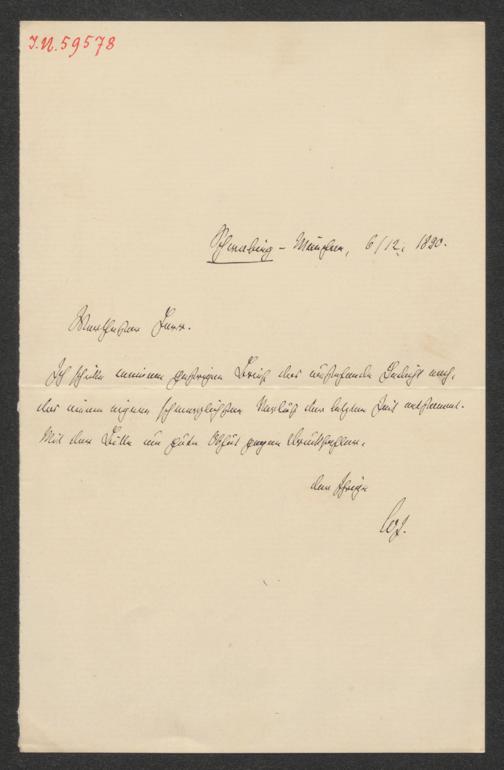 I.N. 59578
Schwabing – München, 6/12. 1890.
Werthester Herr.
Ich schicke meinem gestrigen Brief das anstehende Gedicht nach,
das einem eignen schmerzlichsten Verlust der letzten Zeit entstammt.
Mit der Bitte um gute Obhut gegen Druckfehler,
der Ihrige